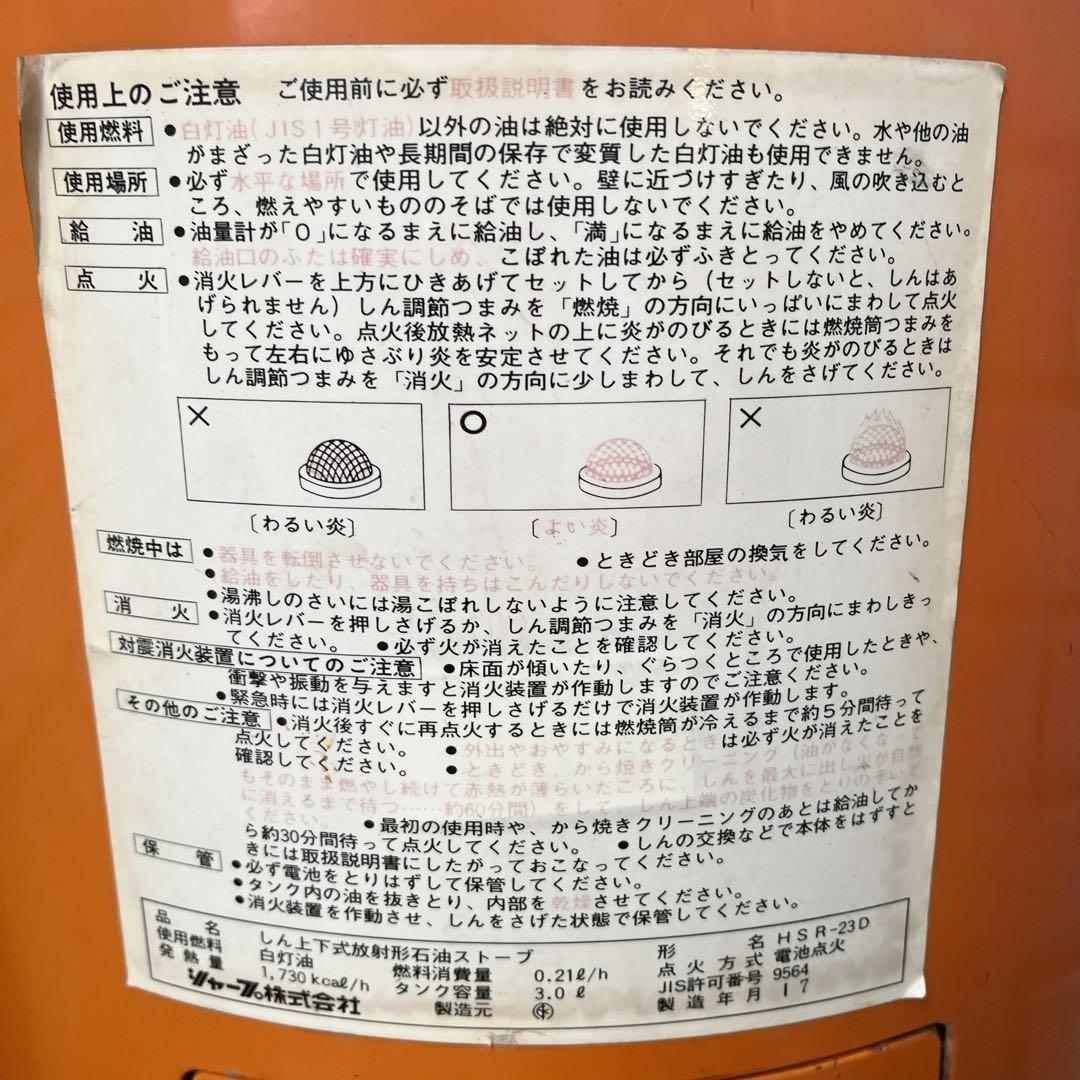 使用上のご注意 ご使用前に必ず取扱説明書をお読みください。
使用燃料 ●白灯油(JIS1号灯油)以外の油は絶対に使用しないでください。水や他の油
がまざった白灯油や長期間の保存で変質した白灯油も使用できません。
使用場所 ●必ず水平な場所で使用してください。壁に近づけすぎたり、風の吹き込むと
ころ、燃えやすいもののそばでは使用しないでください。
給油 ●油量計が「0」になるまえに給油し、「満」になるまえに給油をやめてください。
給油口のふたは確実にしめ、こぼれた油は必ずふきとってください。
点火 ●消火レバーを上方にひきあげてセットしてから(セットしないと、しんはあ
げられません)しん調節つまみを「燃焼」の方向にいっぱいにまわして点火
してください。点火後放熱ネットの上に炎がのびるときには燃焼筒つまみを
もって左右にゆさぶり炎を安定させてください。それでも炎がのびるときは
しん調節つまみを「消火」の方向に少しまわして、しんをさげてください。
× ○ ×
〔わるい炎〕 〔よい炎〕 〔わるい炎〕
燃焼中は ●器具を転倒させないでください。 ●ときどき部屋の換気をしてください。
●給油をしたり、器具を持ちはこんだりしないでください。
●湯沸しのさいには湯こぼれしないように注意してください。
消火 ●消火レバーを押しさげるか、しん調節つまみを「消火」の方向にまわしきっ
てください。 ●必ず火が消えたことを確認してください。
対震消火装置についてのご注意 ●床面が傾いたり、ぐらつくところで使用したときや、
衝撃や振動を与えますと消火装置が作動しますのでご注意ください。
●緊急時には消火レバーを押しさげるだけで消火装置が作動します。
その他のご注意 ●消火後すぐに再点火するときには燃焼筒が冷えるまで約5分間待って
点火してください。 ●外出やおやすみになるときは必ず火が消えたことを
確認してください。 ●ときどき、から焼きクリーニング(油がなくなって
もそのまま燃やし続けて赤熱が薄らいだころに、しんを最大に出し火が自然
に消えるまで待つ……約60分間)をして、しん上端の炭化物をとりのぞいて
ください。 ●最初の使用時や、から焼きクリーニングのあとは給油してか
ら約30分間待って点火してください。 ●しんの交換などで本体をはずすと
きには取扱説明書にしたがっておこなってください。
保管 ●必ず電池をとりはずして保管してください。
●タンク内の油を抜きとり、内部を乾燥させてください。
●消火装置を作動させ、しんをさげた状態で保管してください。
品名 しん上下式放射形石油ストーブ 形名 HSR-23D
使用燃料 白灯油 燃料消費量 0.21ℓ/h 点火方式 電池点火
発熱量 1,730kcaℓ/h タンク容量 3.0ℓ JIS許可番号 9564
シャープ株式会社 製造元 製造年月 17